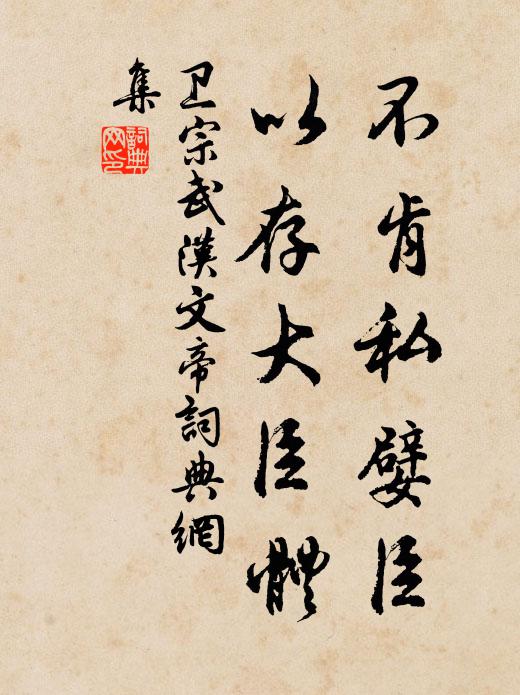 不肯私嬖臣
以存大臣體
卫宗武漢文帝詞典網
集
詞典
网印